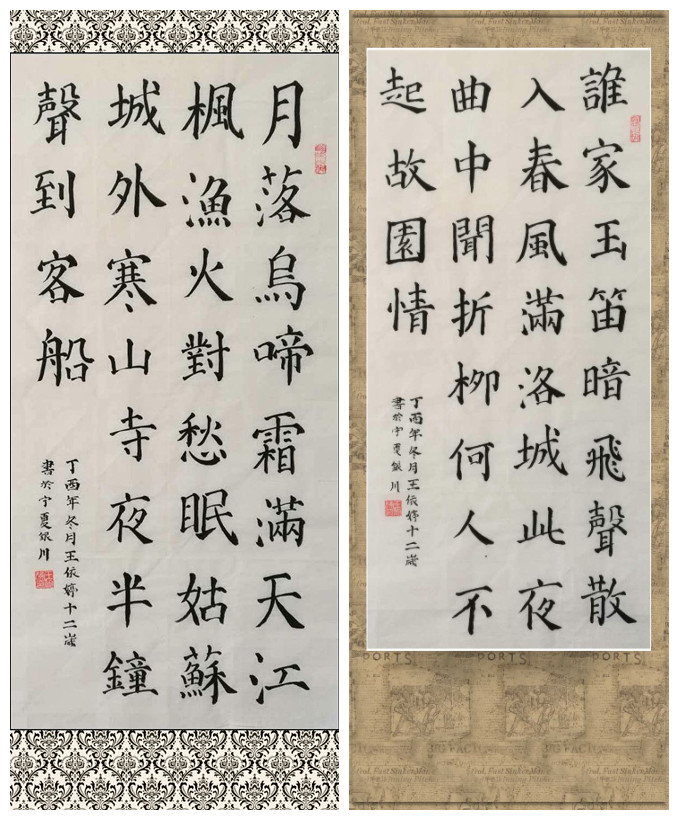 月落烏啼霜滿天江
楓漁火對愁眠姑蘇
城外寒山寺夜半鐘
聲到客船
丁酉年冬月王依婷十二歲
書於宁夏銀川
誰家玉笛暗飛聲散
入春風滿洛城此夜
曲中聞折柳何人不
起故園情
丁酉年冬月王依婷十二歲
書於宁夏銀川